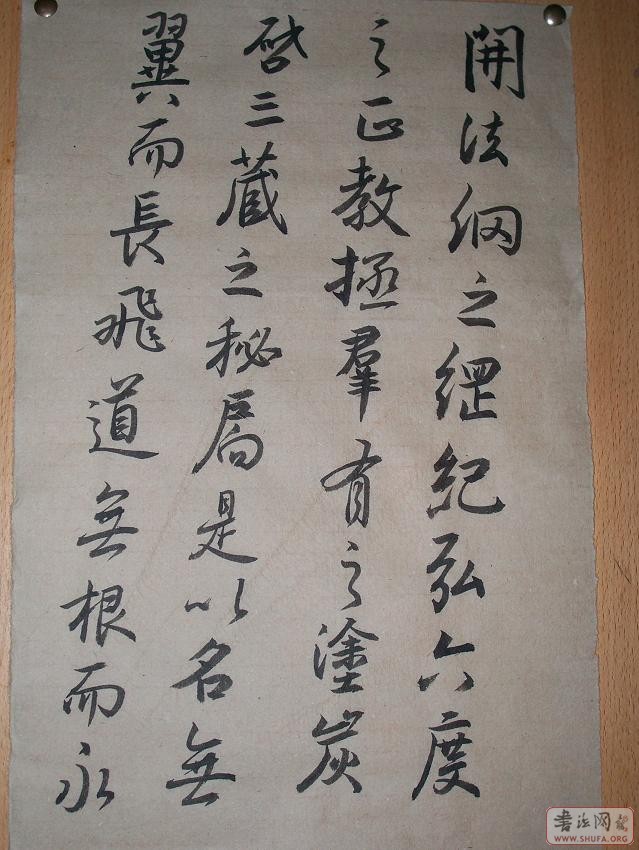 開法網之綱紀弘六度
之正教拯羣有之塗炭
啓三蔵之秘扃是以名無
翼而長飛道無根而永
书法网
WWW.SHUFA.ORG